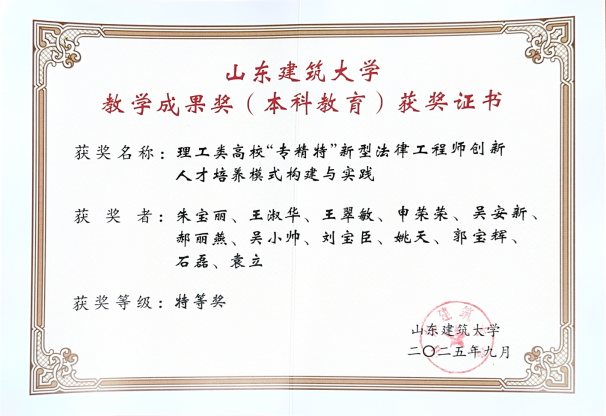 山东建筑大学
教学成果奖（本科教育）获奖证书
获奖名称：理工类高校“专精特”新型法律工程师创新
人才培养模式构建与实践
获奖者：朱宝丽、王淑华、王翠敏、申荣荣、吴安新、
郝丽燕、吴小帅、刘宝臣、姚天、郭宝辉、
石磊、袁立
获奖等级：特等奖
山东建筑大学
二〇二五年九月